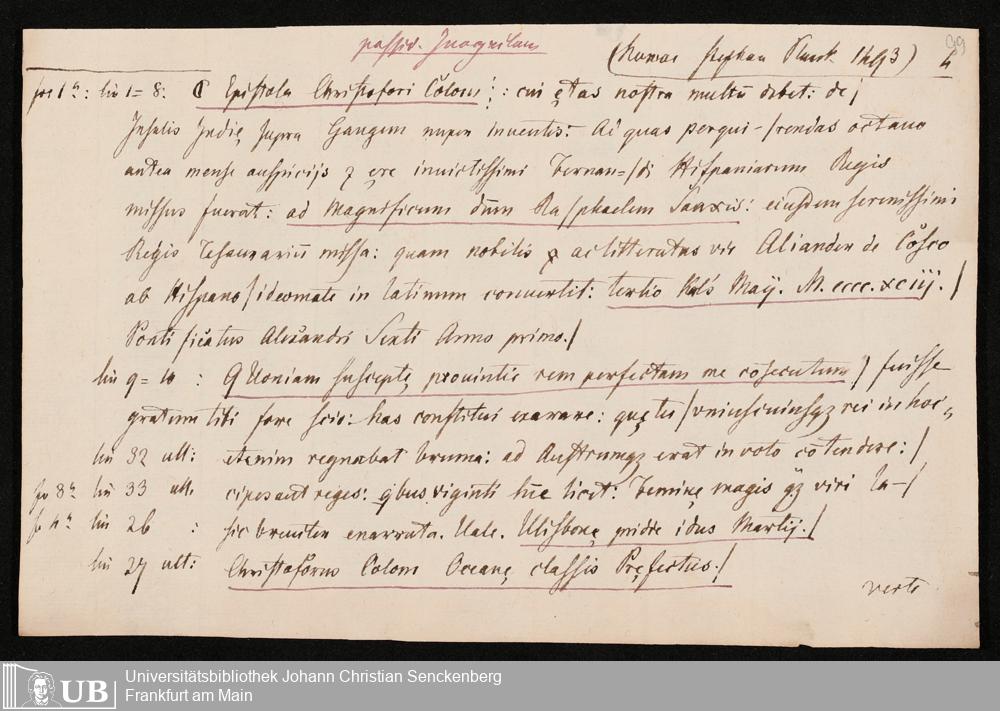 (Romae Stephan Planck 1493) 4
99
fos 1ª: lin 1=8: ( Epistola Christofori Colom: : cui ętas nostra multũ debet: de |
Insulis Indię supra Gangem nuper inuentis: Ad quas perqui-/rendas octauo
antea mense auspicijs z ęre inuictissimi Fernan=/di Hispaniarum Regis
missus fuerat: ad Magnificum dñm Ra/phaelem Sanxis: eiusdem serenissimi
Regis Tesaurariũ missa: quam nobilis ac litteratus vir Aliander de Cosco
ab Hispano / ideomate in latinum conuertit: tertio kal's Maij. M.cccc.xciij. /
Pontificatus Alexandri Sexti Anno primo. /
lin 9=10 : QUoniam susceptę prouintię rem perfectam me cõsecutum / fuisse
gratum tibi fore scio: has constitui exarare: quę te / vniuscuiusqz rei in hoc,,
lin 32 ult: etenim regnabat bruma: ad Austrumqz erat in voto cõtendere: /
fo 3ª lin 33 ult. cipesaut reges: qbus viginti hr̃e licet: Feminę magis qz viri la-/
fo 4ª lin 26 : sic breuiter enarrata. Uale. Ulisbonę pridie idus Martij. /
lin 27 ult: Christoforus Colom Oceanę classis Pręfectus. /
verte
UB Universitätsbibliothek Johann Christian Senckenberg
Frankfurt am Main